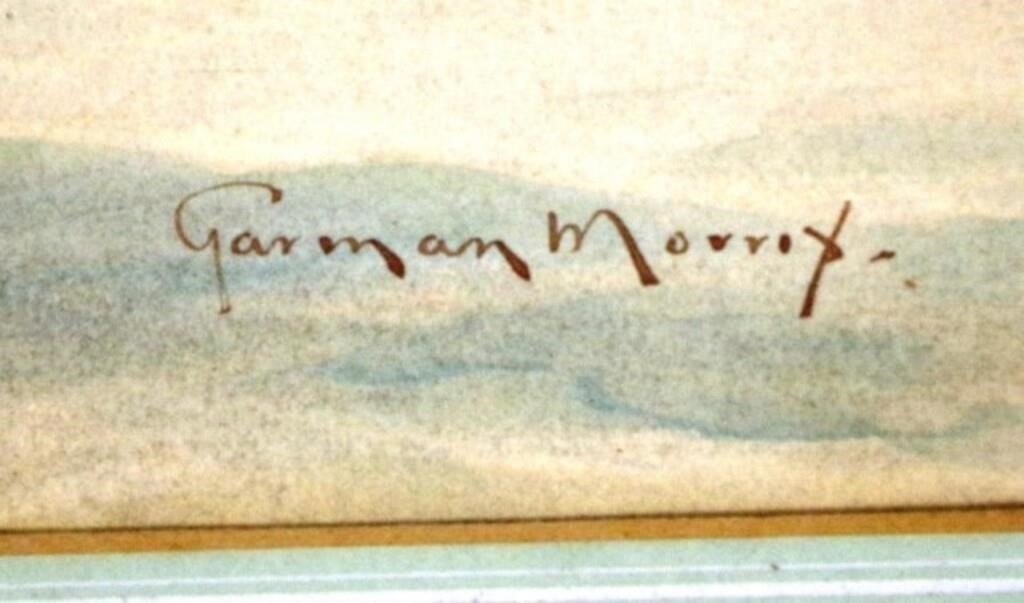 Garman Morris.